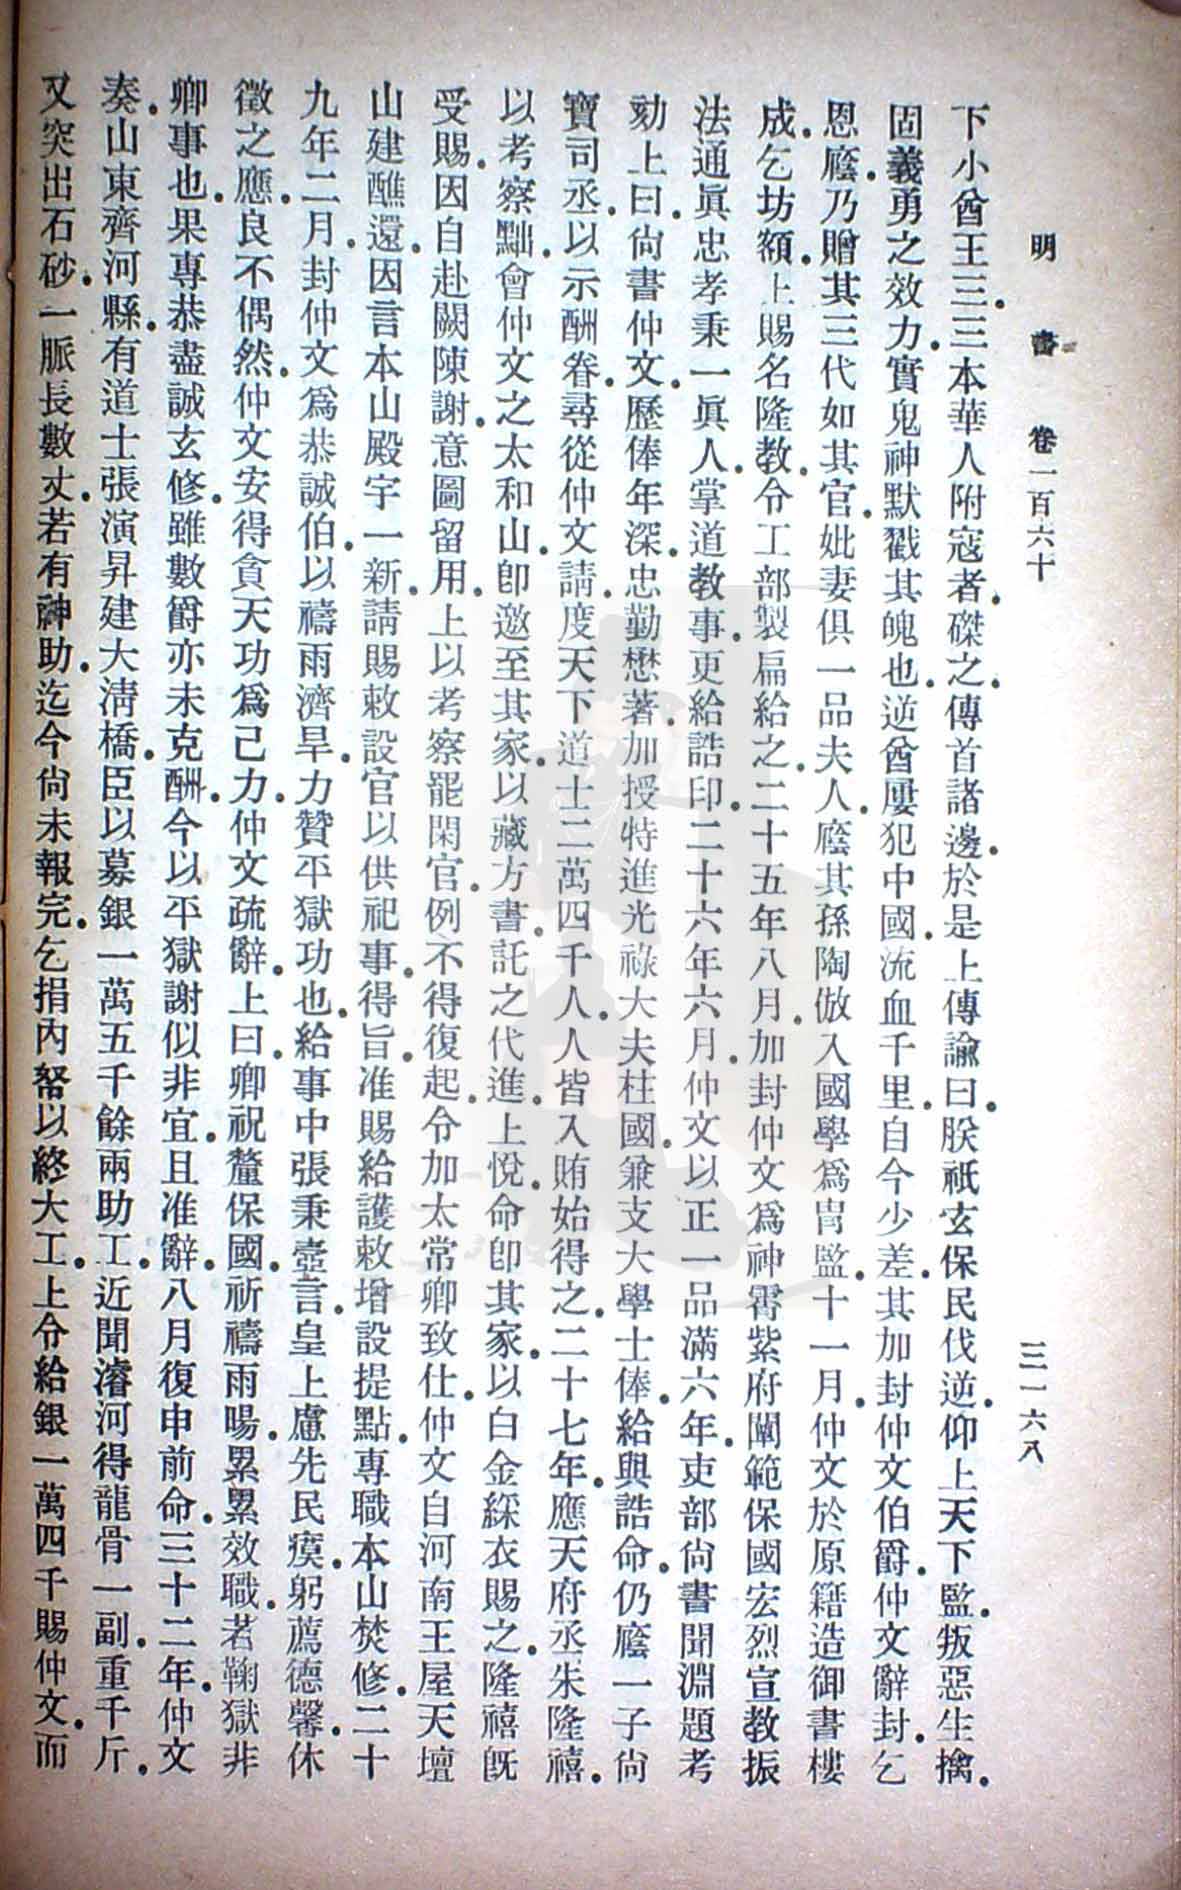 明書 卷一百六十 三一六八
下小酋王三三本華人附寇者磔之傳首諸邊於是上傳諭曰朕祇玄保民伐逆仰上天下監叛惡生擒
固義勇之效力實鬼神默戳其魄也逆酋屢犯中國流血千里自今少差其加封仲文伯爵仲文辭封乞
恩廕乃贈其三代如其官妣妻俱一品夫人廕其孫陶倣入國學爲胄監十一月仲文於原籍造御書樓
成乞坊額上賜名隆教令工部製扁給之二十五年八月加封仲文爲神霄紫府闡範保國宏烈宣教振
法通眞忠孝秉一眞人掌道教事更給誥印二十六年六月仲文以正一品滿六年吏部尙書聞淵題考
劾上曰尙書仲文歷俸年深忠勤懋著加授特進光祿大夫柱國兼支大學士俸給與誥命仍廕一子尙
寶司丞以示酬眷尋從仲文請度天下道士二萬四千人人皆入賄始得之二十七年應天府丞朱隆禧
以考察黜會仲文之太和山卽邀至其家以藏方書託之代進上悅命卽其家以白金綵衣賜之隆禧旣
受賜因自赴闕陳謝意圖留用上以考察罷閑官例不得復起令加太常卿致仕仲文自河南王屋天壇
山建醮還因言本山殿宇一新請賜敕設官以供祀事得旨准賜給護敕增設提點專職本山焚修二十
九年二月封仲文爲恭誠伯以禱雨濟旱力贊平獄功也給事中張秉壺言皇上慮先民瘼躬薦德馨休
徵之應良不偶然仲文安得貪天功爲己力仲文疏辭上曰卿祝釐保國祈禱雨暘累累效職若鞫獄非
卿事也果專恭盡誠玄修雖數爵亦未克酬今以平獄謝似非宜且准辭八月復申前命三十二年仲文
奏山東齊河縣有道士張演昇建大淸橋臣以募銀一萬五千餘兩助工近聞濬河得龍骨一副重千斤
又突出石砂一脈長數丈若有神助迄今尙未報完乞捐內帑以終大工上令給銀一萬四千賜仲文而